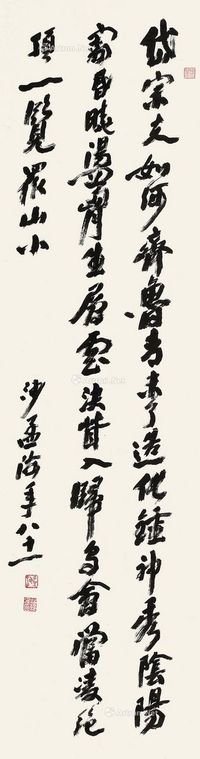 岱宗夫如何齊魯青未了造化鍾神秀陰陽
割昏曉盪胷生層雲決眥入歸鳥會當凌絕
頂一覽衆山小
沙孟海年八十一